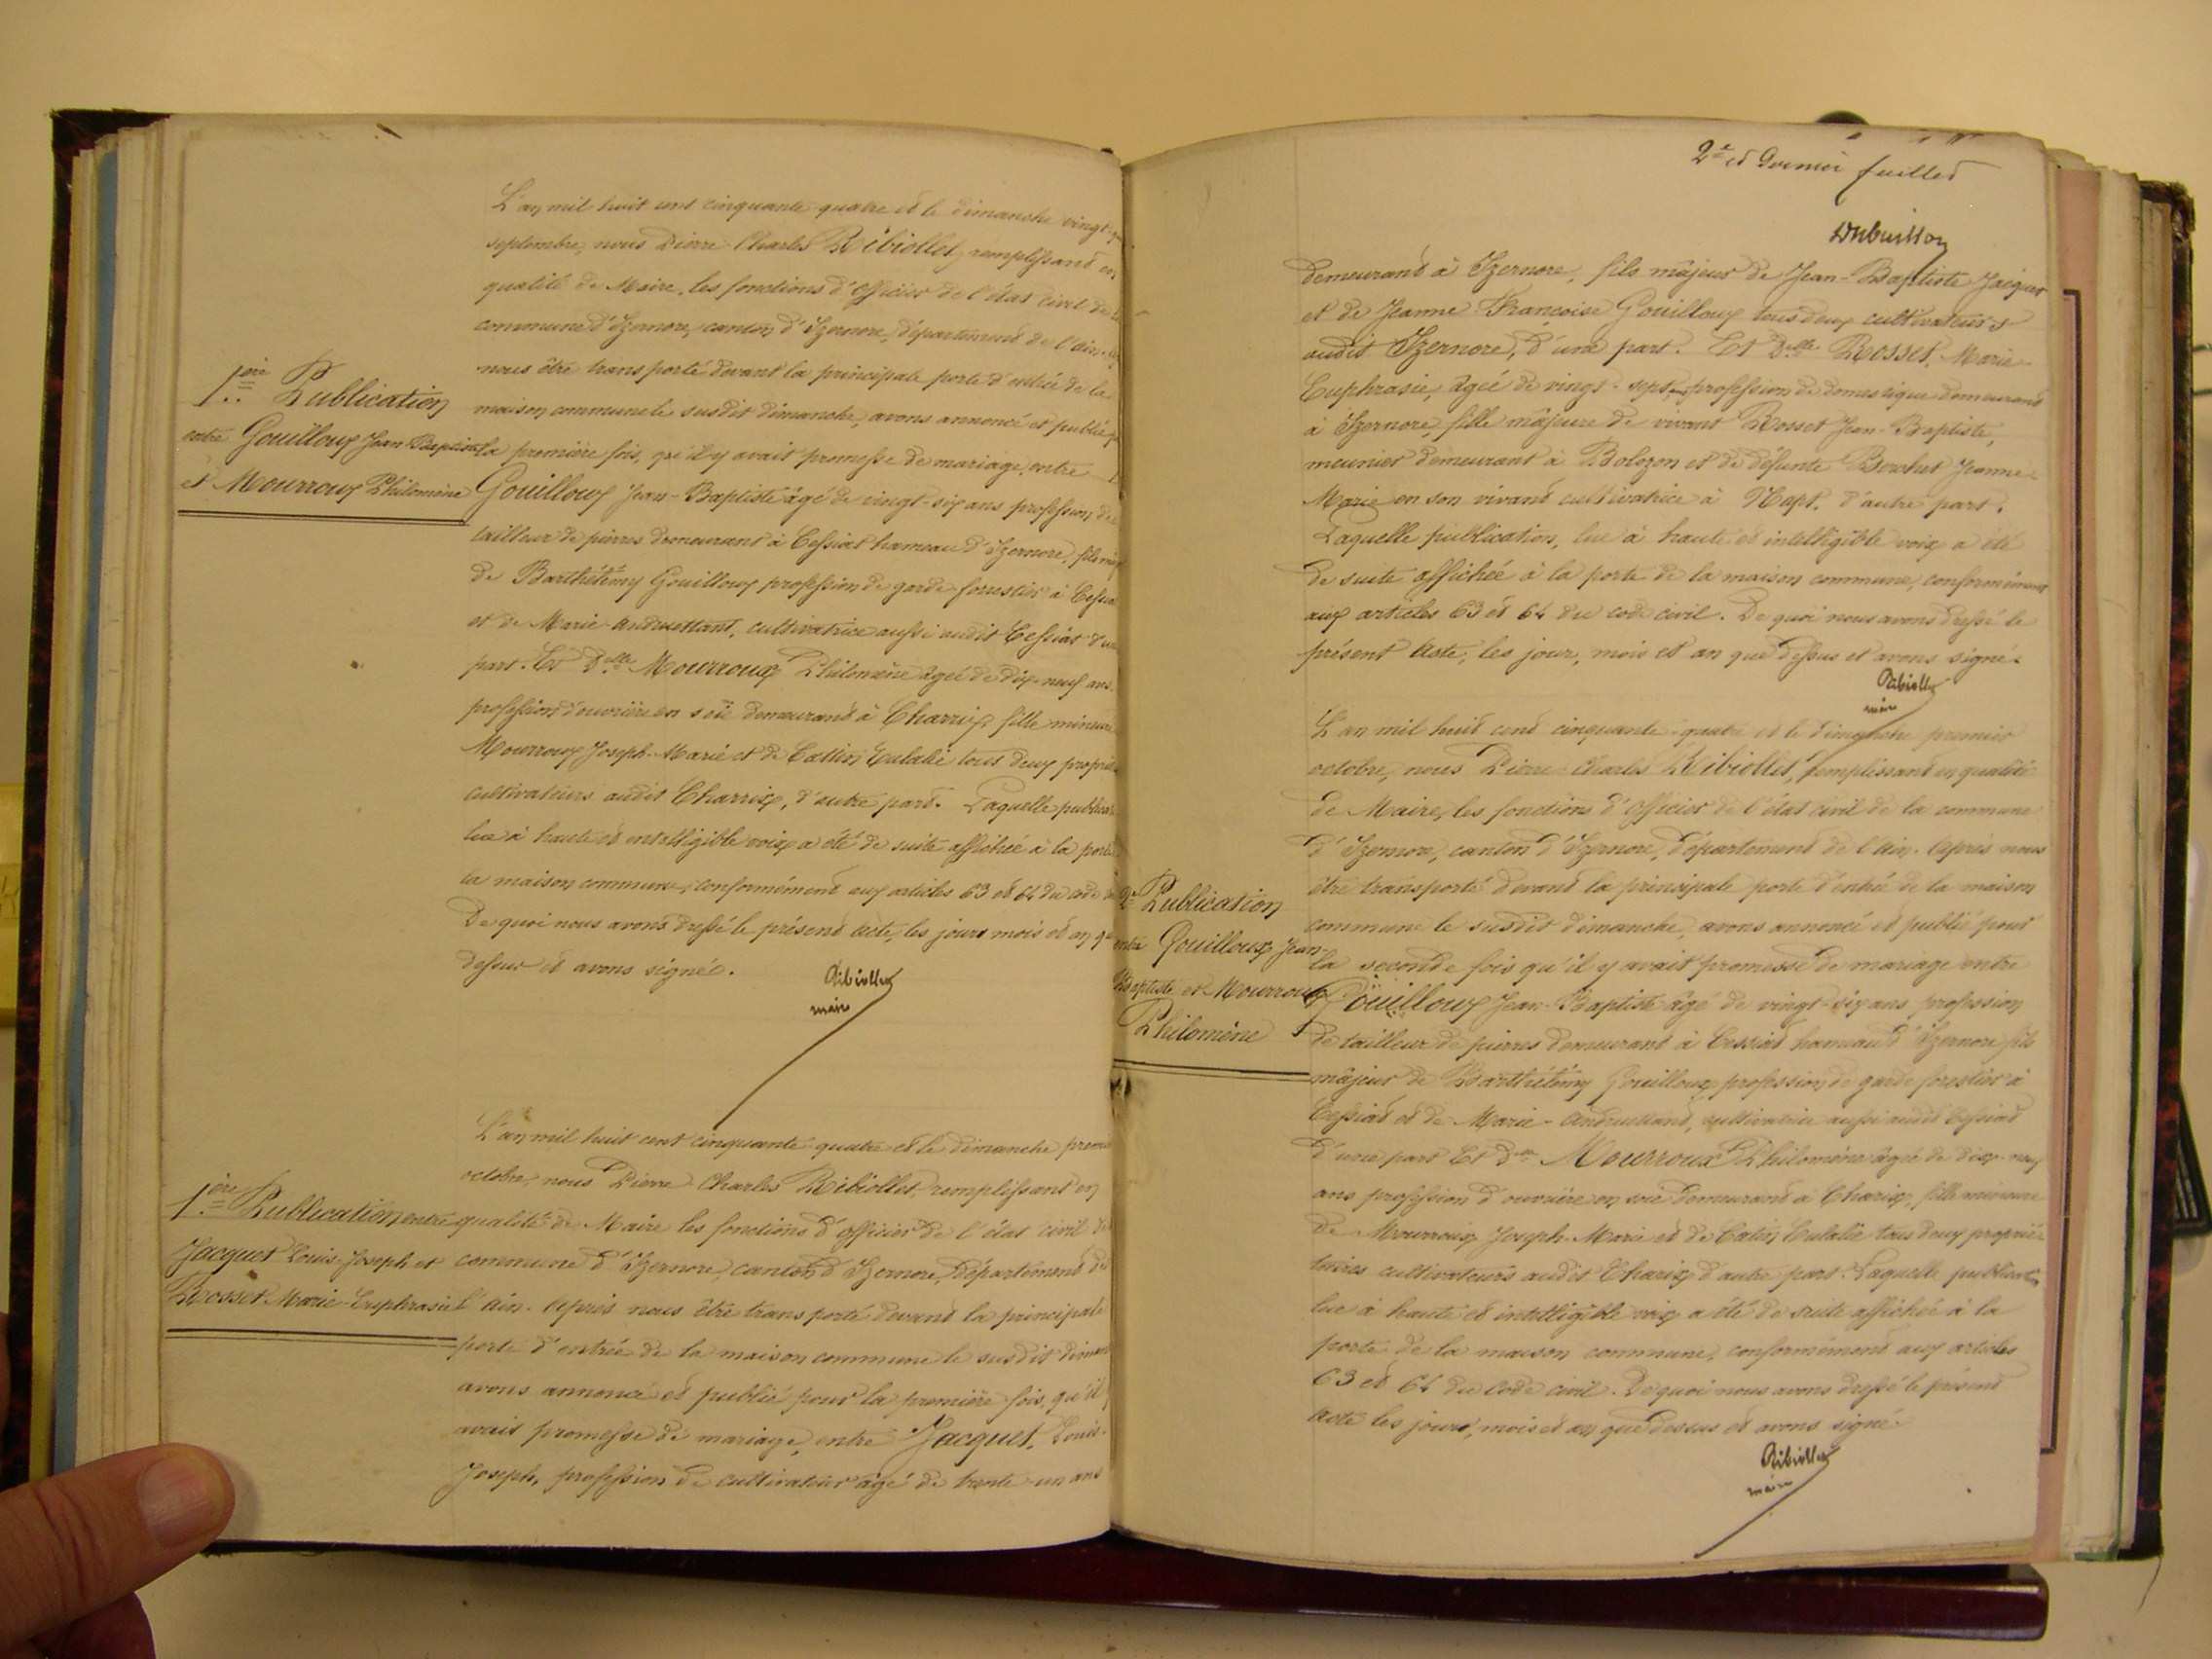 L'an mil huit cent cinquante quatre et le dimanche vingt-
septembre, nous Pierre-Charles Ribiollet, remplissant en
qualité de Maire, les fonctions d'officier de l'état civil de
commune d'Izernore, canton d'Izernore, département de l'ain.
nous être transporté devant la principale porte d'entrée de la
1ère Publication
entre Gouilloux Jean Baptiste
et Mourroux Philomène
maison commune le susdit dimanche, avons annoncé et publié
la première fois, qu'il y avait promesse de mariage, entre
Gouilloux Jean-Baptiste âgé de vingt-six ans profession de
tailleur de pierres demeurant à Cessiat hameau d'Izernore, fils
de Barthélémy Gouilloux profession de garde forrestier à
et de Marie Andruettant, cultivatrice aussi audit Cessiat d'
part. Et Delle Mourroux Philomène âgée de dix-neuf ans,
profession d'ouvrière en soie demeurant à Charrix fille mineure
Mourroux Joseph-Marie et de Cattin Eulalie tous deux
cultivateurs audit Charrix, d'autre part. Laquelle
lue à haute et intelligible voix a été de suite affichée à la porte
la maison commune, conformément aux articles 63 et 64 du code
De quoi nous avons dressé le présent acte, les jours mois et an
dessus et avons signé.
Ribiollet
maire
L'an mil huit cent cinquante quatre et le dimanche
octobre, nous Pierre-Charles Ribiollet, remplissant en
1ère Publication entre
Jacquet Louis-Joseph et
Rosset Marie-Euphrasie
qualité de Maire les fonctions d'officier de l'état civil
commune d'Izernore, canton d'Izernore, département de
l'ain. Après nous être transporté devant la principale
porte d'entrée de la maison commune le susdit
avons annoncé et publié pour la première fois, qu'il
avait promesse de mariage, entre Jacquet, Louis-
Joseph, profession de cultivateur âgé de trente-un ans
2e et dernier feuillet
Dubuisson
demeurant à Izernore, fils mâjeur de Jean-Baptiste Jacquet
et de Jeanne Francoise Gouilloux tous deux cultivateurs
audit Izernore, d'une part. Et Delle Rosset, Marie-
Euphrasie, âgée de vingt-sept ans profession de domestique demeurant
à Izernore, fille mâjeure de vivant Rosset Jean-Baptiste,
meunier demeurant à Bolozon et de défunte Bochet Jeanne-
Marie en son vivant cultivatrice à Napt, d'autre part.
Laquelle publication, lue à haute et intelligible voix a été
de suite affichée à la porte de la maison commune, conformément
aux articles 63 et 64 du code civil. De quoi nous avons dressé le
présent acte, les jour, mois et an que dessus et avons signé.
Ribiollet
maire
L'an mil huit cent cinquante-quatre et le dimanche premier
octobre, nous Pierre-Charles Ribiollet, remplissant en qualité
de Maire, les fonctions d'officier de l'état civil de la commune
d'Izernore, canton d'Izernore, département de l'Ain. Après nous
être transporté devant la principale porte d'entrée de la maison
2e Publication
entre Gouilloux Jean-
Baptiste et Mourroux
Philomène
commune le susdit dimanche, avons annoncé et publié pour
la seconde fois qu'il y avait promesse de mariage entre
Gouilloux Jean-Baptiste âgé de vingt-six ans profession
de tailleur de pierres demeurant à Cessiat hameau d'Izernore fils
mâjeur de Barthélémy Gouilloux profession de garde forestier à
Cessiat et de Marie-Andruettant, cultivatrice aussi audit Cessiat
d'une part Et Delle Mourroux Philomène âgée de dix-neuf
ans profession d'ouvrière en soie demeurant à Charix, fille mineure
de Mourroux Joseph-Marie et de Catin Eulalie tous deux proprié-
taires cultivateurs audit Charix d'autre part. Laquelle publication
lue à haute et intelligible voix a été de suite affichée à la
porte de la maison commune, conformément aux articles
63 et 64 du Code civil. De quoi nous avons dressé le présent
acte les jours, mois et an que dessus et avons signé
Ribiollet
maire